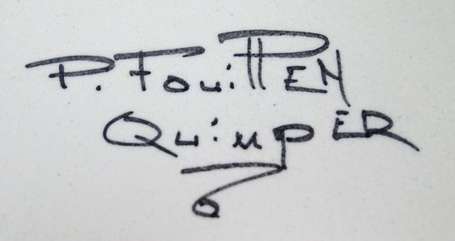 P. Fouillen
Quimper